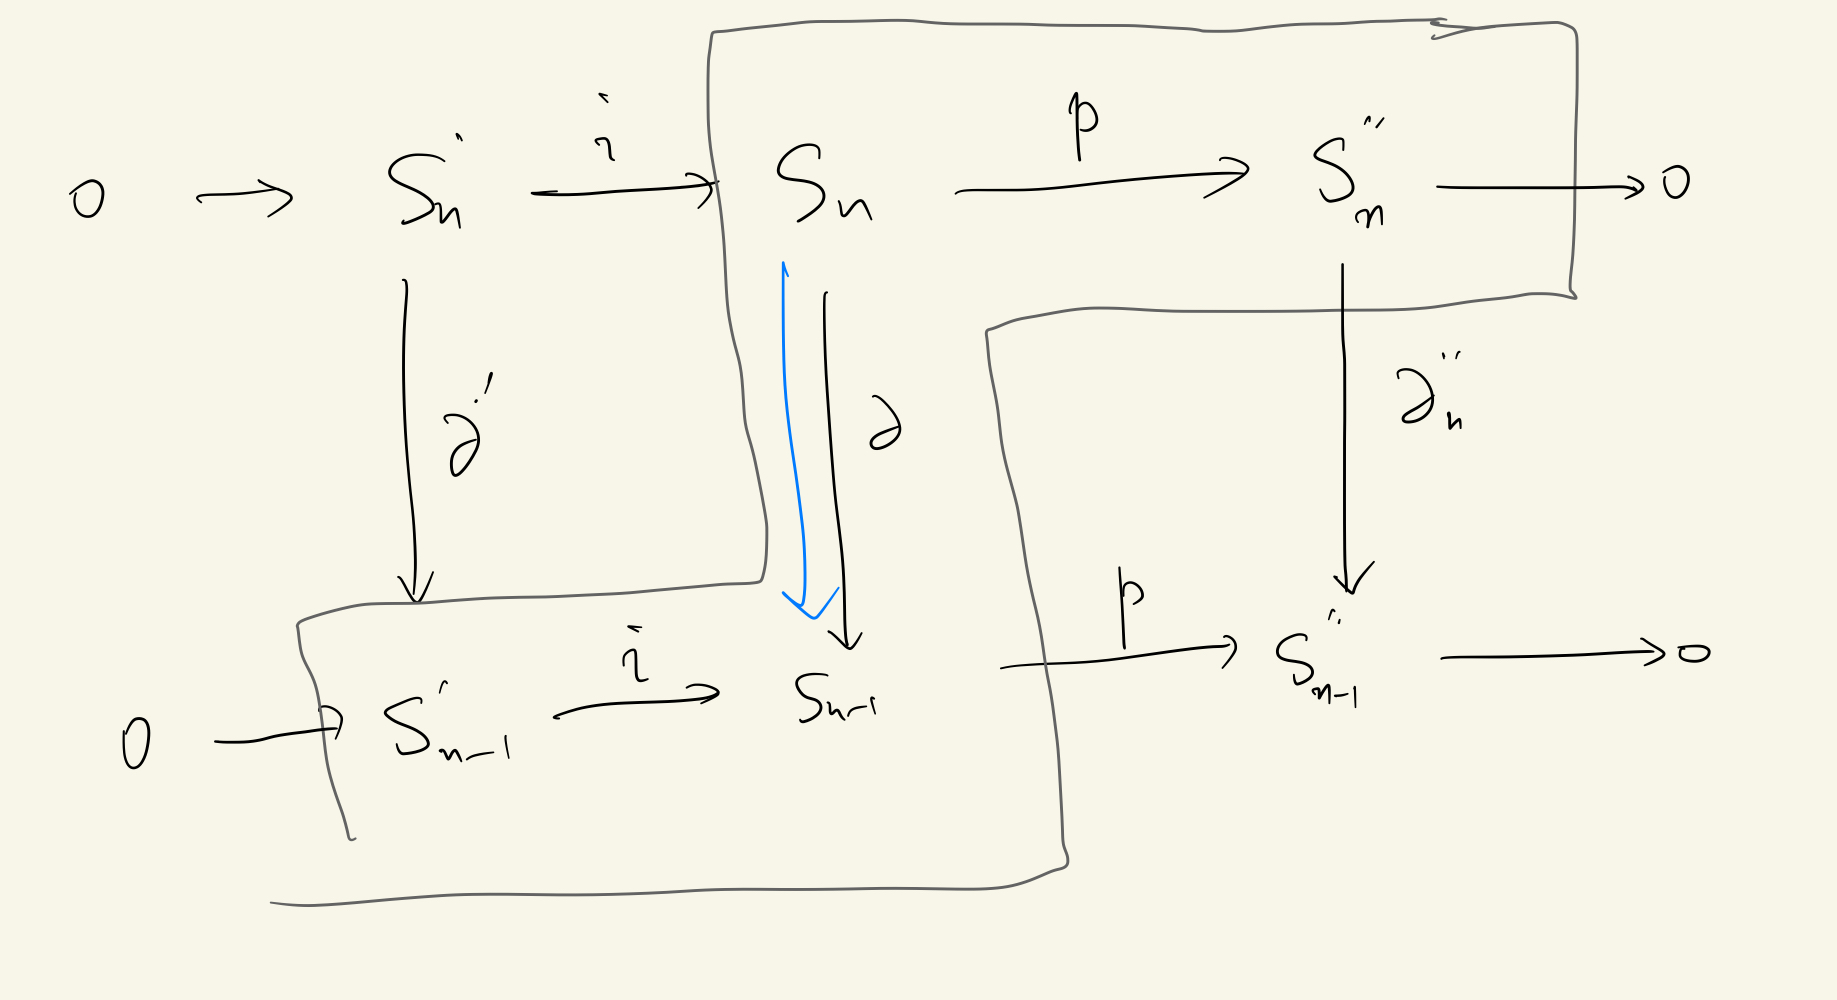 0 → S'ₙ →i Sₙ →p S''ₙ → 0
∂' ∂ ∂''ₙ
0 → S'ₙ₋₁ →i Sₙ₋₁ →p S''ₙ₋₁ → 0